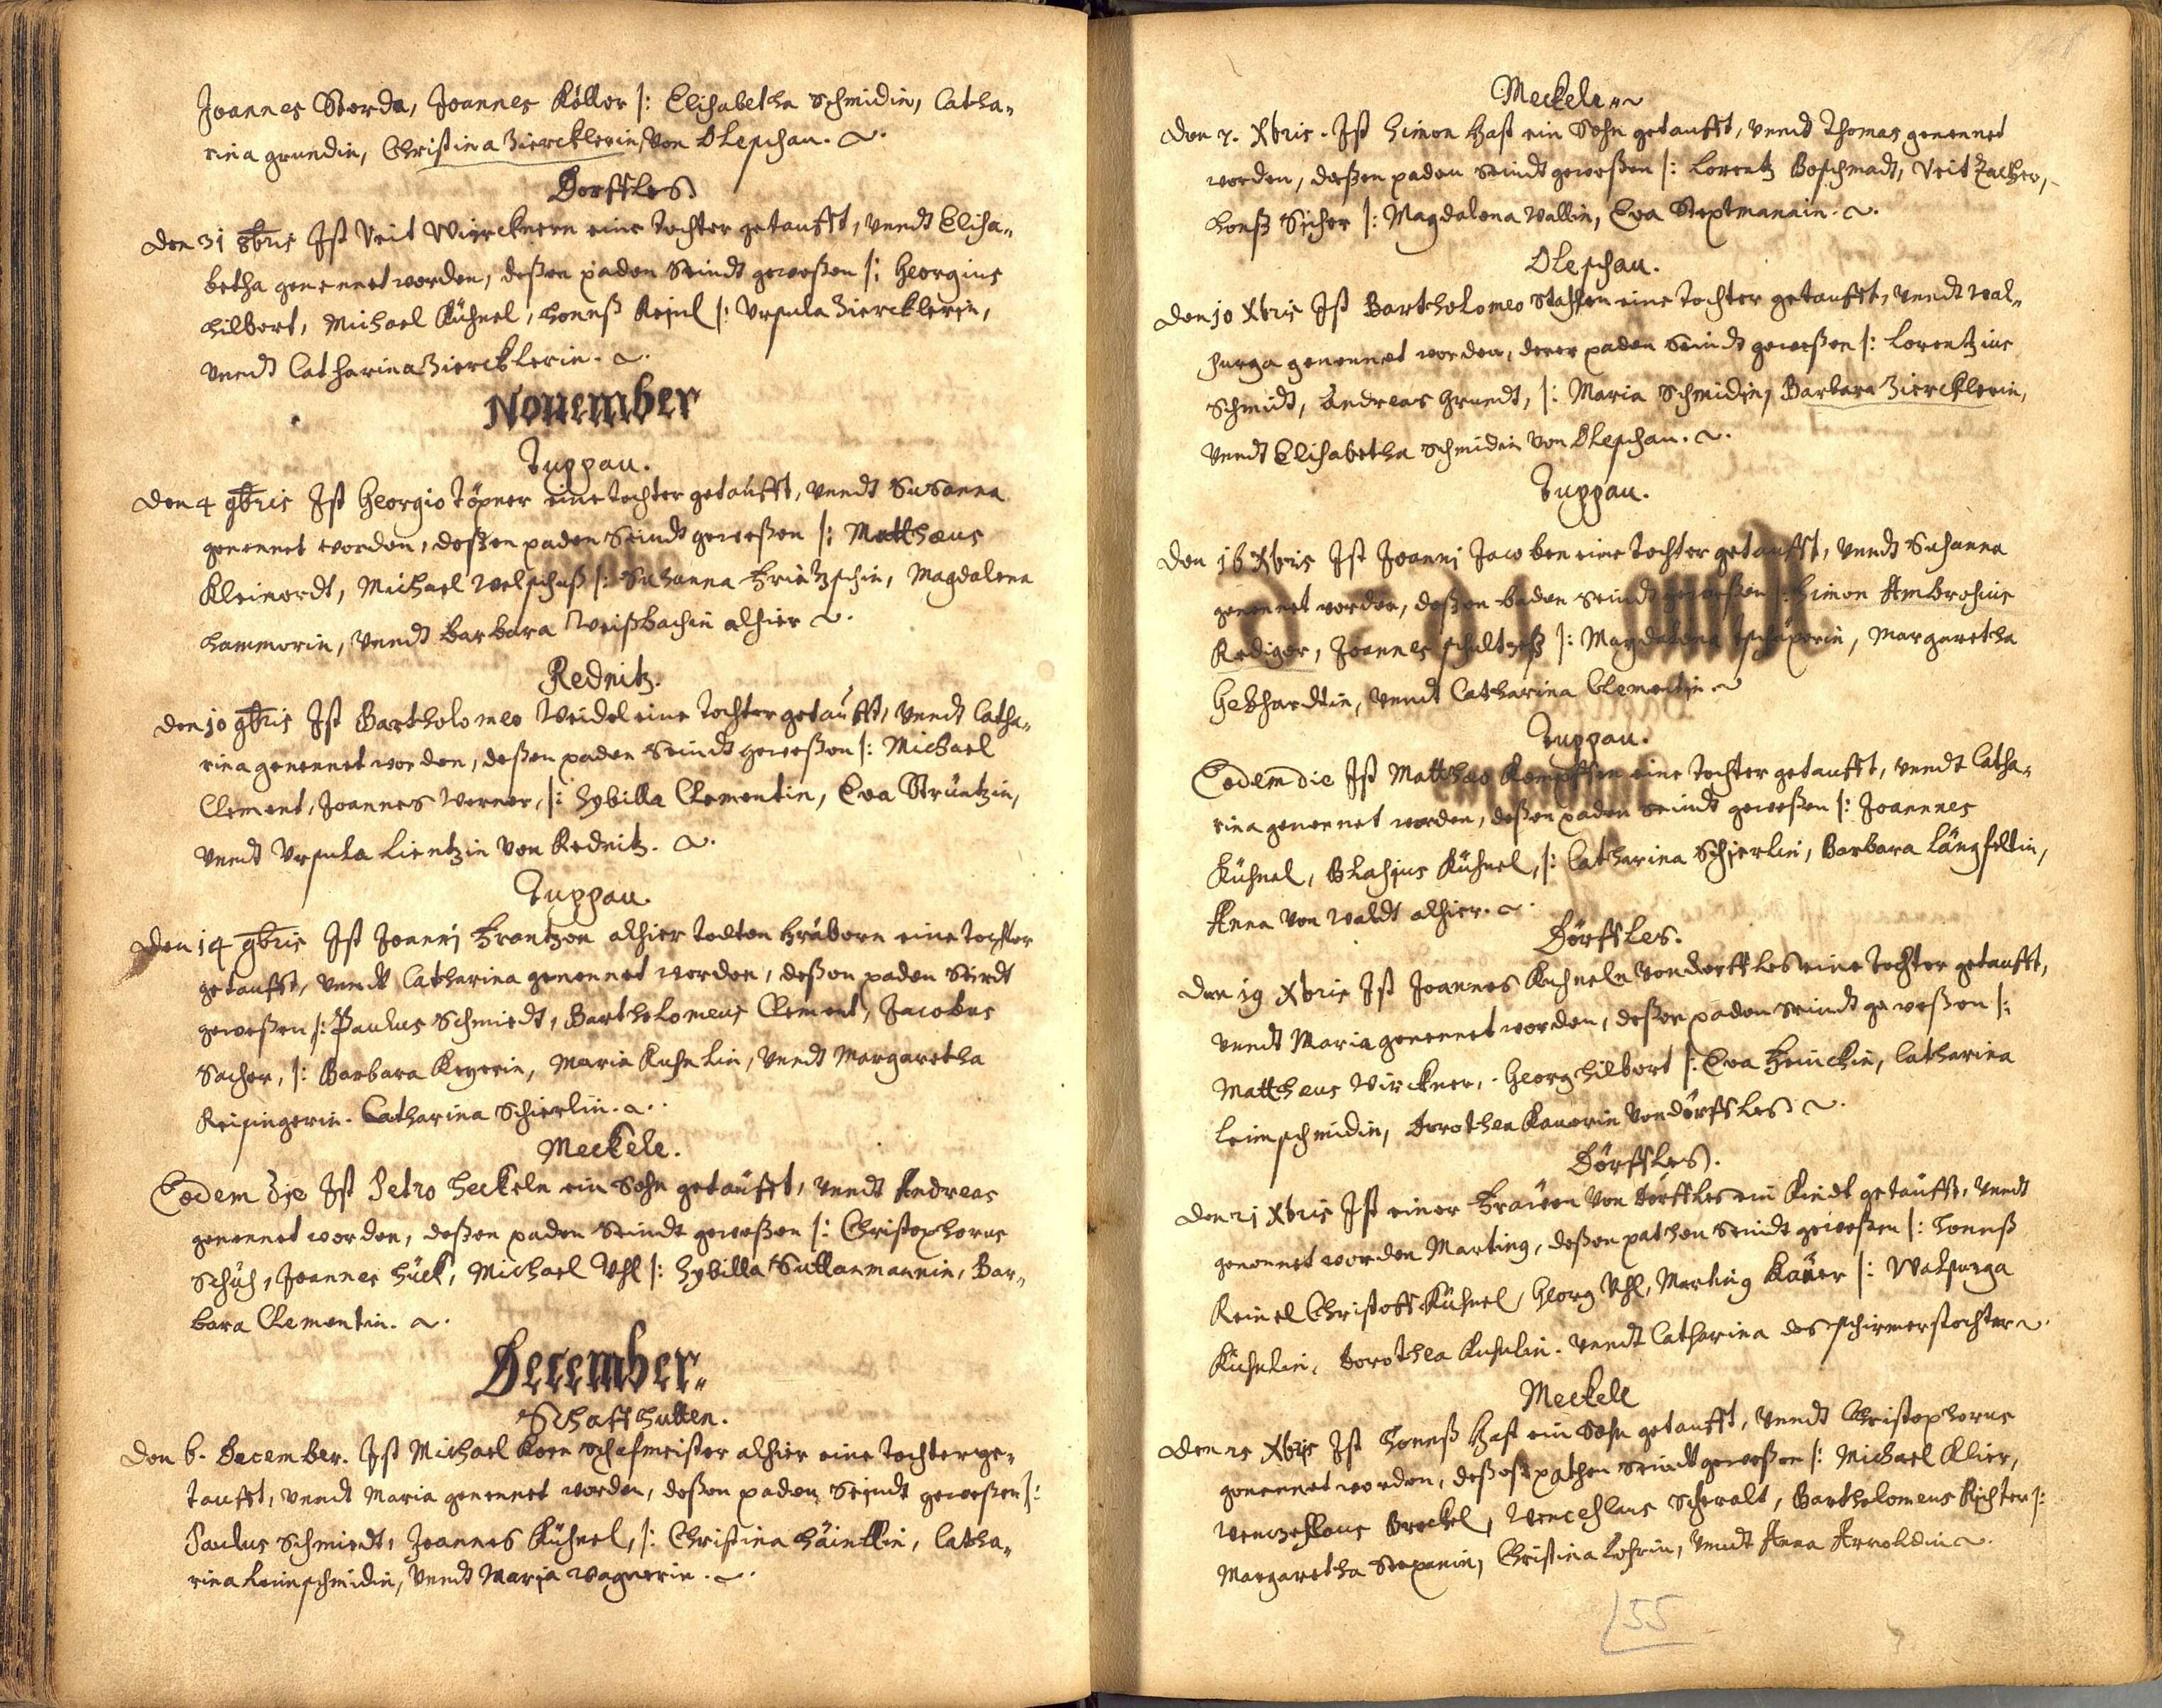 Joannes Storda, Joannes Köller |: Elisabetha Schmidin, Catha„
rina grundin, Christina Zierklerin, von Olepschau.
Dorffles
Den 31 8bris Ist Veit Wircknern eine tochter getaufft, vnndt Elisa„
betha genennet worden, deßen paden Seindt geweßen |: Georgius
Hilbert, Michael Kühnel, Honnß Reinl |: Vrsula Zierklerin,
vnndt Catharina Zierklerin.
November
Tuppau.
Den 4 9bris Ist Georgio Töpner eine tochter getaufft, vnndt Susanna
genennet worden, deßen paden Seindt geweßen |: Matthæus
Kleinordt, Michael Welschuß |: Susanna Frietzschin, Magdalena
Hammerin, vnndt Barbara Weißbachin alhier
Rednitz.
Den 10 9bris Ist Bartholomeo Weidel eine tochter getaufft, vnndt Catha„
rina genennet worden, deßen paden Seindt geweßen |: Michael
Clement, Joannes Werner, |: Sybilla Clementin, Eva Strüntzin,
vnndt Vrsula Lientzin von Rednitz.
Tuppau.
Den 14 9bris Ist Joanni Frantzen alhier todten Gräbern eine tochter
getaufft, vnndt Catharina genennet worden, deßen paden Seindt
geweßen |: Paulus Schmiedt, Bartholomeus Clement, Jacobus
Sacher, |: Barbara Regerin, Maria Kuhnlin, vnndt Margaretha
Reisingerin. Catharina Schierlin.
Meckele.
Eodem Die Ist Petro Heckeln ein Sohn getaufft, vnndt Andreas
genennet worden, deßen paden Seindt geweßen |: Christophorus
Schuh, Joannes Hück, Michael Vhl |: Sybilla Suttanmannin, Bar„
bara Clementin.
December„
Schaffhutten.
Den 6. December. Ist Michael Korn Schafmeister alhier eine tochter ge„
taufft, vnndt Maria genennet worden, deßen paden Seindt geweßen |:
Paulus Schmiedt, Joannes Kühnel, |: Christina Häintlin, Catha„
rina Leimschmidin, vnndt Maria Wagnerin.
Meckele„
Den 7. Xbris. Ist Simon Hast ein Sohn getaufft, vnndt Thomas genennet
worden, deßen paden Seindt geweßen |: Lorentz Boschmadt, Veit Zacher,
Honß Sicher |: Magdalena Wallin, Eva Steptmannin.
Olepschau.
Den 10 Xbris Ist Bartholomeo Stahlen eine tochter getaufft, vnndt Wal„
purga genennet worden, derer paden Seindt geweßen |: Lorentzius
Schmidt, Andreas Grundt, |: Maria Schmidin, Barbara Zierklerin,
vnndt Elisabetha Schmidin von Olepschau.
Tuppau.
Den 16 Xbris Ist Joanni Jacoben eine tochter getaufft, vnndt Susanna
genennet worden, deßen baden Seindt geweßen |: Simon Ambrosius
Rediger, Joannes Schultheß |: Magdalena Tschäperin, Margaretha
Gebhardtin, vnndt Catharina Clementin.
Tuppau.
Eodem die Ist Matthæo Kempffen eine tochter getaufft, vnndt Catha„
rina genennet worden, deßen paden Seindt geweßen |: Joannnes
Kühnel, Blasius Kühnel, |: Catharina Schierlin, Barbara Längfeltin,
Anna von Waldt alhier.
Dörffles.
Den 19 Xbris Ist Joannes Kuhneln von dorffles eine tochter getaufft,
vnndt Maria genennet worden, deßen paden Seindt geweßen |:
Mattheus Wirckner, Georg Hilbert |: Eva Heinckin, Catharina
Leimschmidin, Dorothea Kauerin von dörffles
Dörffles.
Den 21 Xbris Ist einer Frauen von dörffles ein Kindt getaufft, vnndt
genennet worden Martinus, deßen pathen Seindt geweßen |: Honnß
Reinel Christoff Kühnel, Georg Vhl, Martinus Kauer |: Walpurga
Kühnlin, Dorothea Kuhnlin. vnndt Catharina des schirmers tochter
Meckele
Den 25 Xbris Ist Honnß Hast ein Sohn getaufft, vnndt Christophorus
genennet worden, deßen pathen Seindt geweßen |: Michael Klier,
Wentzeslaus Brockel, Wenceslaus Scheralt, Bartholomeus Richter |:
Margaretha Stepanin, Christina Lohrin, vnndt Anna Arnoldin
155